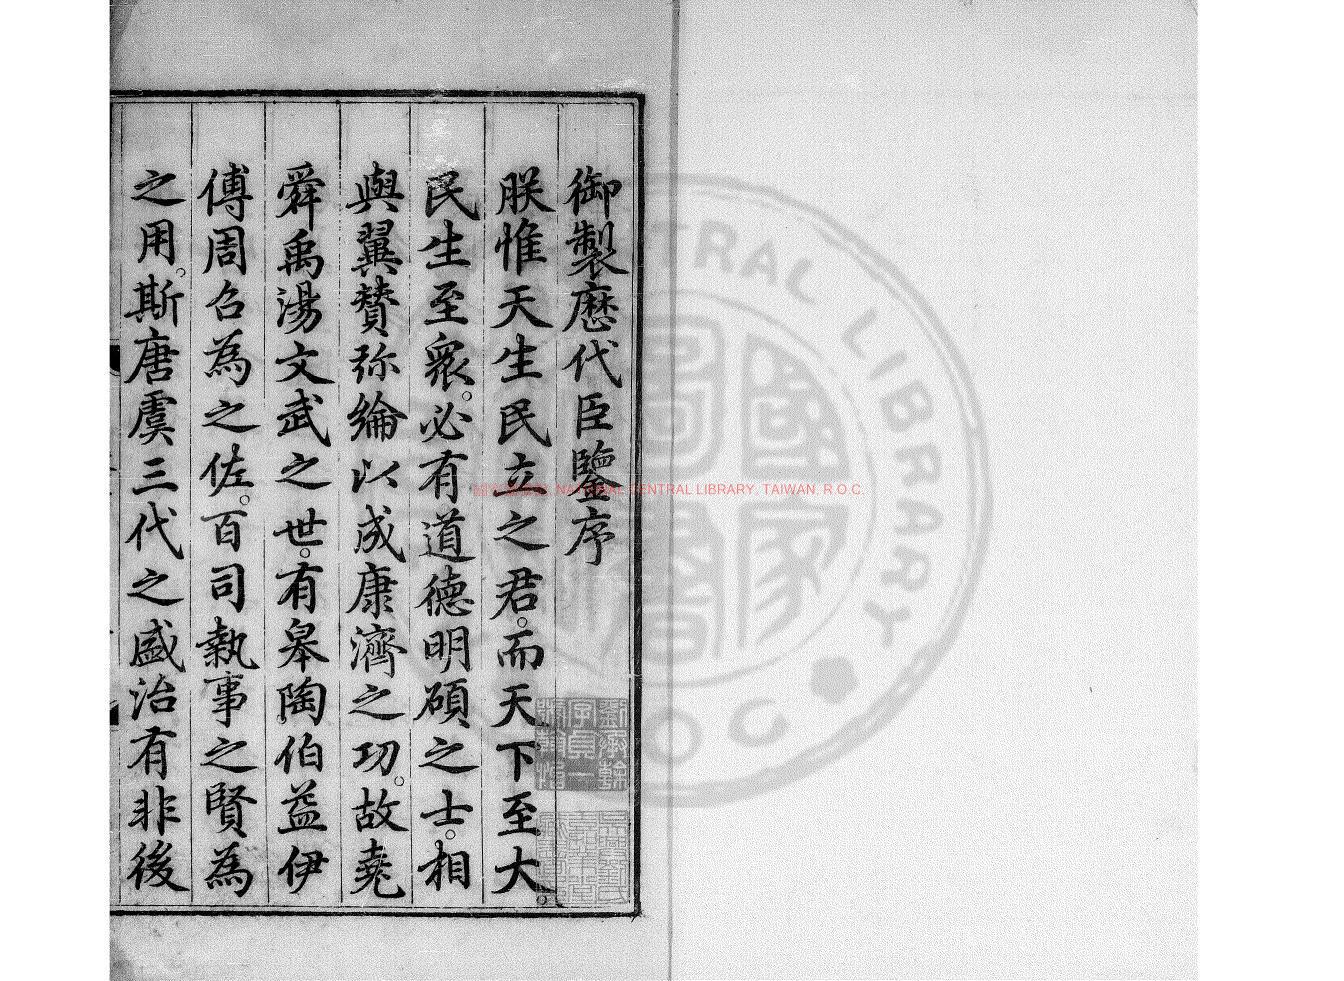 御製歷代臣鑒序
朕惟天生民立之君。而天下至大。
民生至衆。必有道德明碩之士。相
與翼贊弥綸以成康濟之功。故堯
舜禹湯文武之世。有皋陶伯益伊
傅周召為之佐。百司執事之賢為
之用。斯唐虞三代之盛治有非後
NATIONAL CENTRAL LIBRARY, TAIWAN, R.O.C.